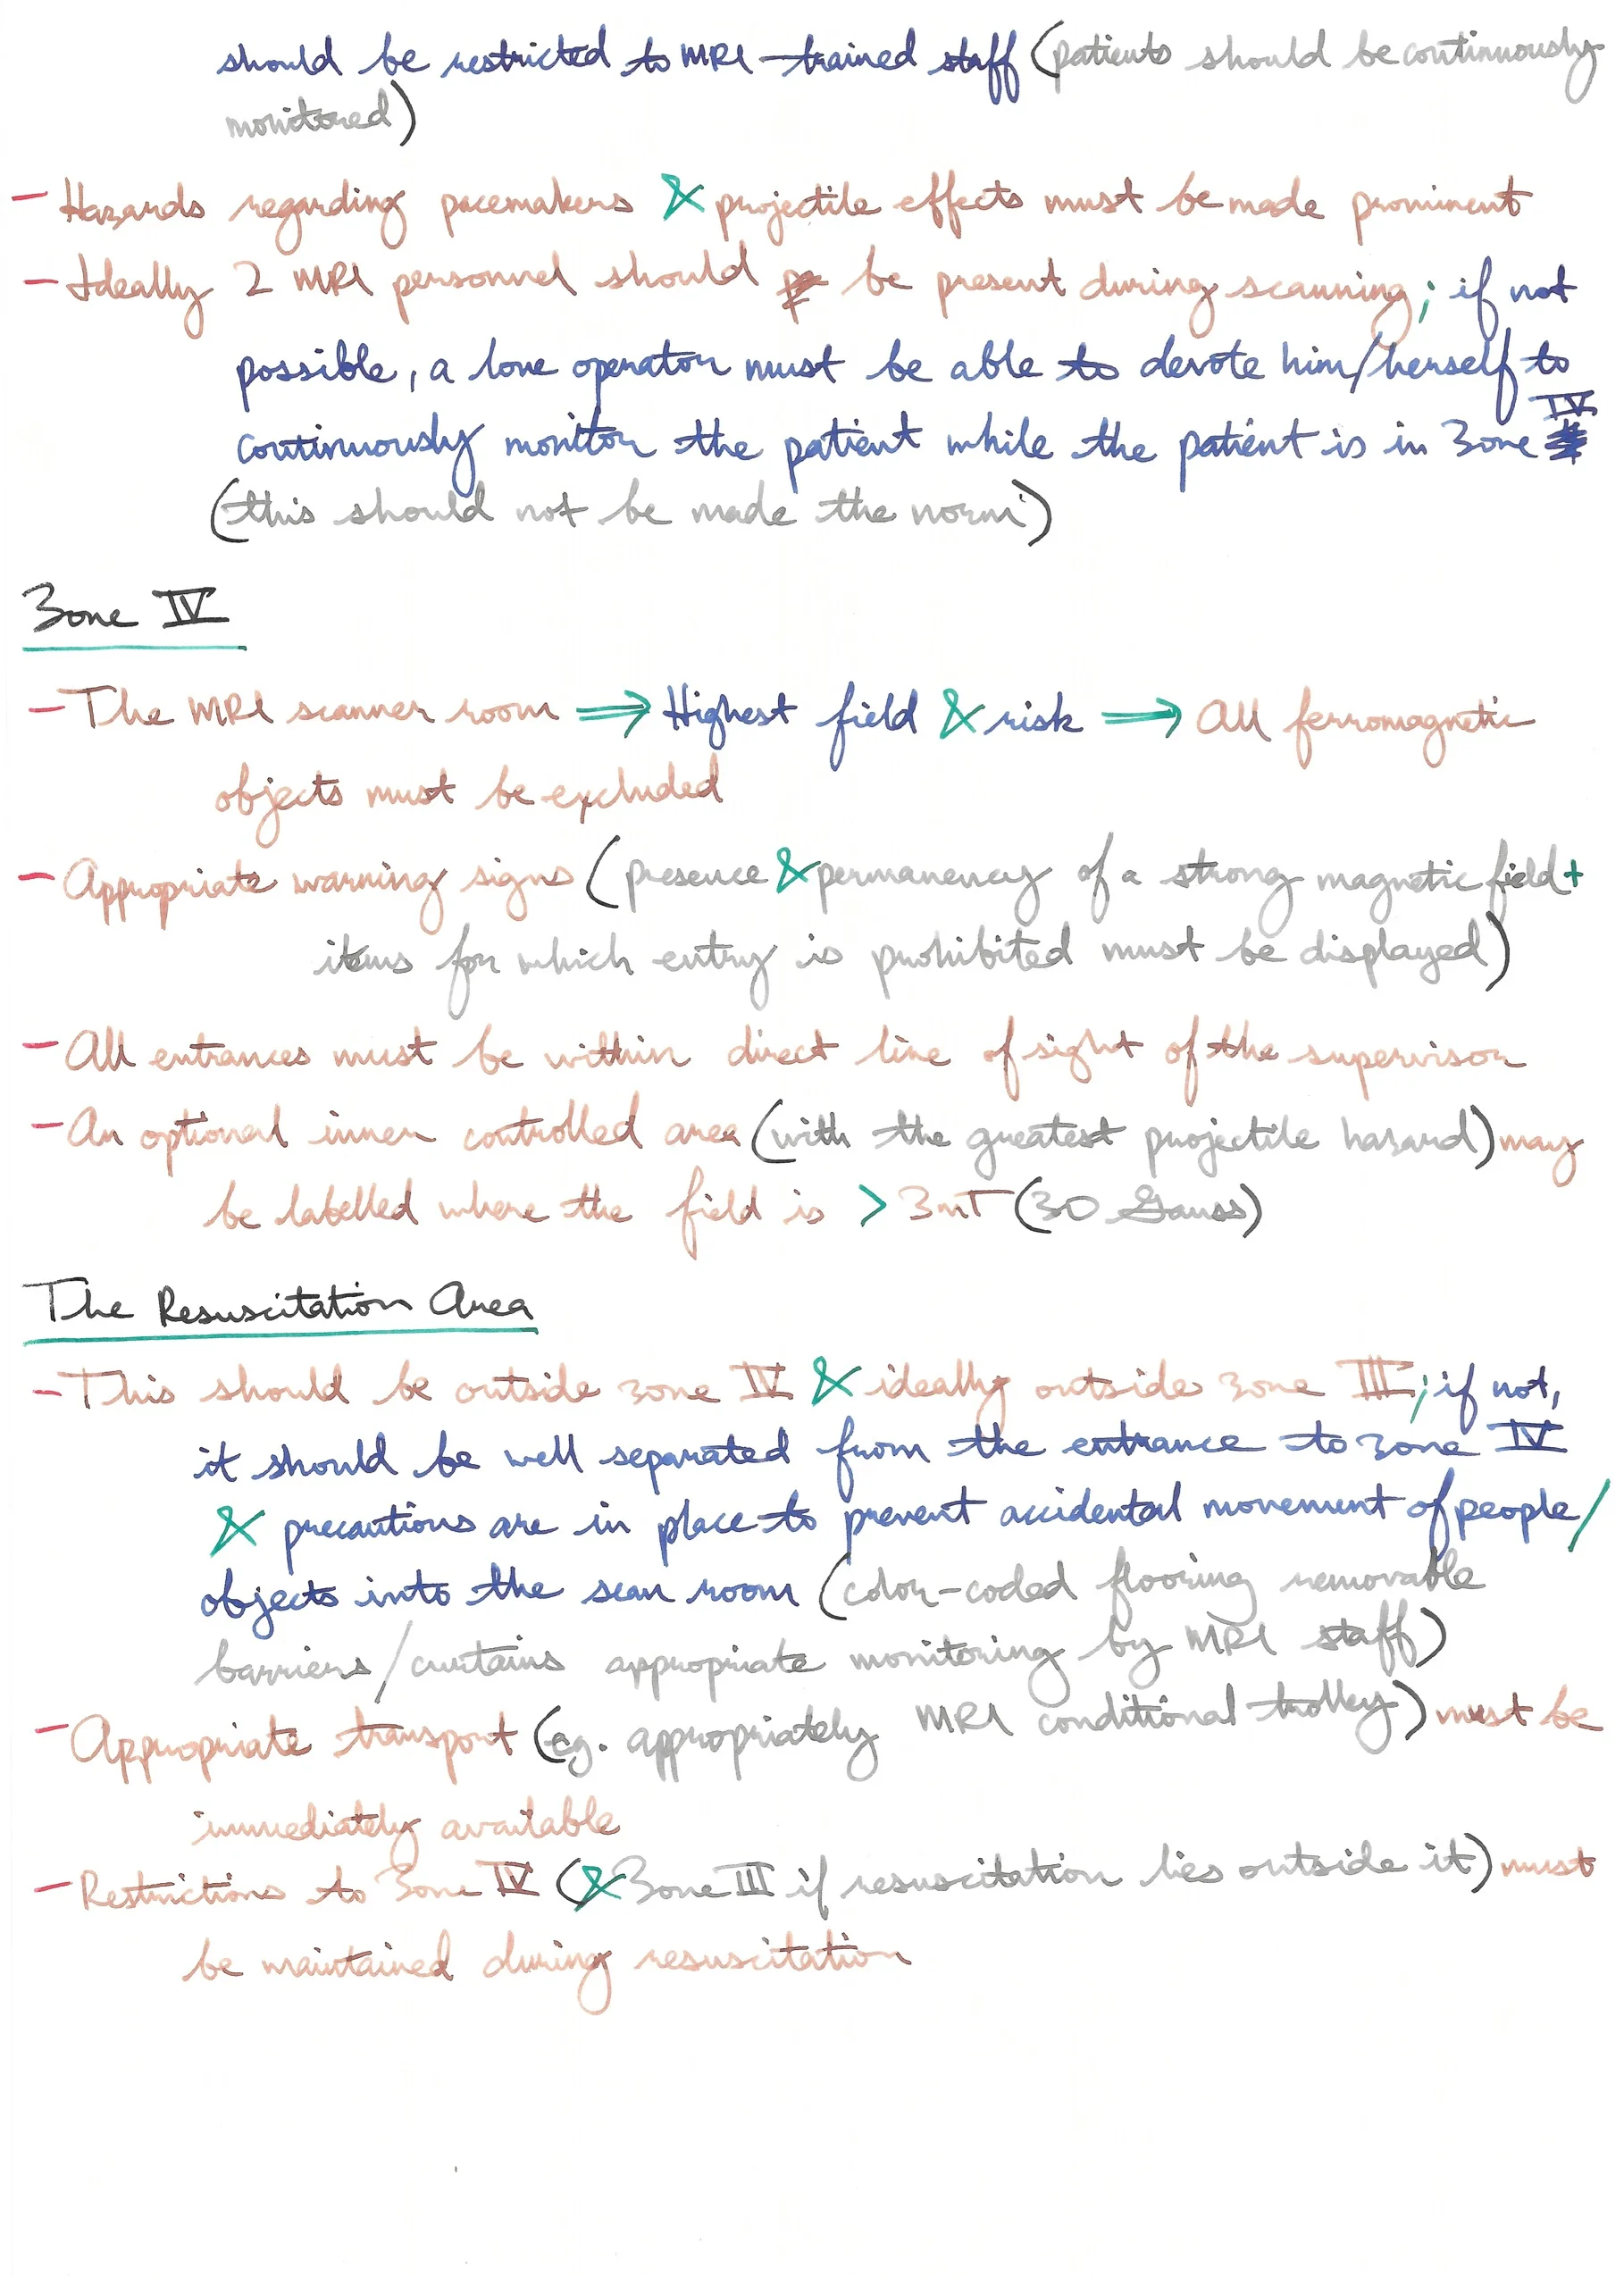 should be restricted to MRI-trained staff (patients should be continuously
monitored)
- Hazards regarding pacemakers & projectile effects must be made prominent
- Ideally 2 MRI personnel should be present during scanning; if not
possible, a lone operator must be able to devote him/herself to
continuously monitor the patient while the patient is in Zone IV
(this should not be made the norm)
Zone IV
- The MRI scanner room ⇒ Highest field & risk ⇒ All ferromagnetic
objects must be excluded
- Appropriate warning signs (presence & permanency of a strong magnetic field +
items for which entry is prohibited must be displayed)
- All entrances must be within direct line of sight of the supervisor
- An optional inner controlled area (with the greatest projectile hazard) may
be labelled where the field is > 3mT (30 Gauss)
The Resuscitation Area
- This should be outside zone IV & ideally outside zone III; if not,
it should be well separated from the entrance to zone IV
& precautions are in place to prevent accidental movement of people/
objects into the scan room (color-coded flooring removable
barriers/curtains appropriate monitoring by MRI staff)
- Appropriate transport (eg. appropriately MRI conditional trolley) must be
immediately available
- Restrictions to Zone IV (& Zone III if resuscitation lies outside it) must
be maintained during resuscitation